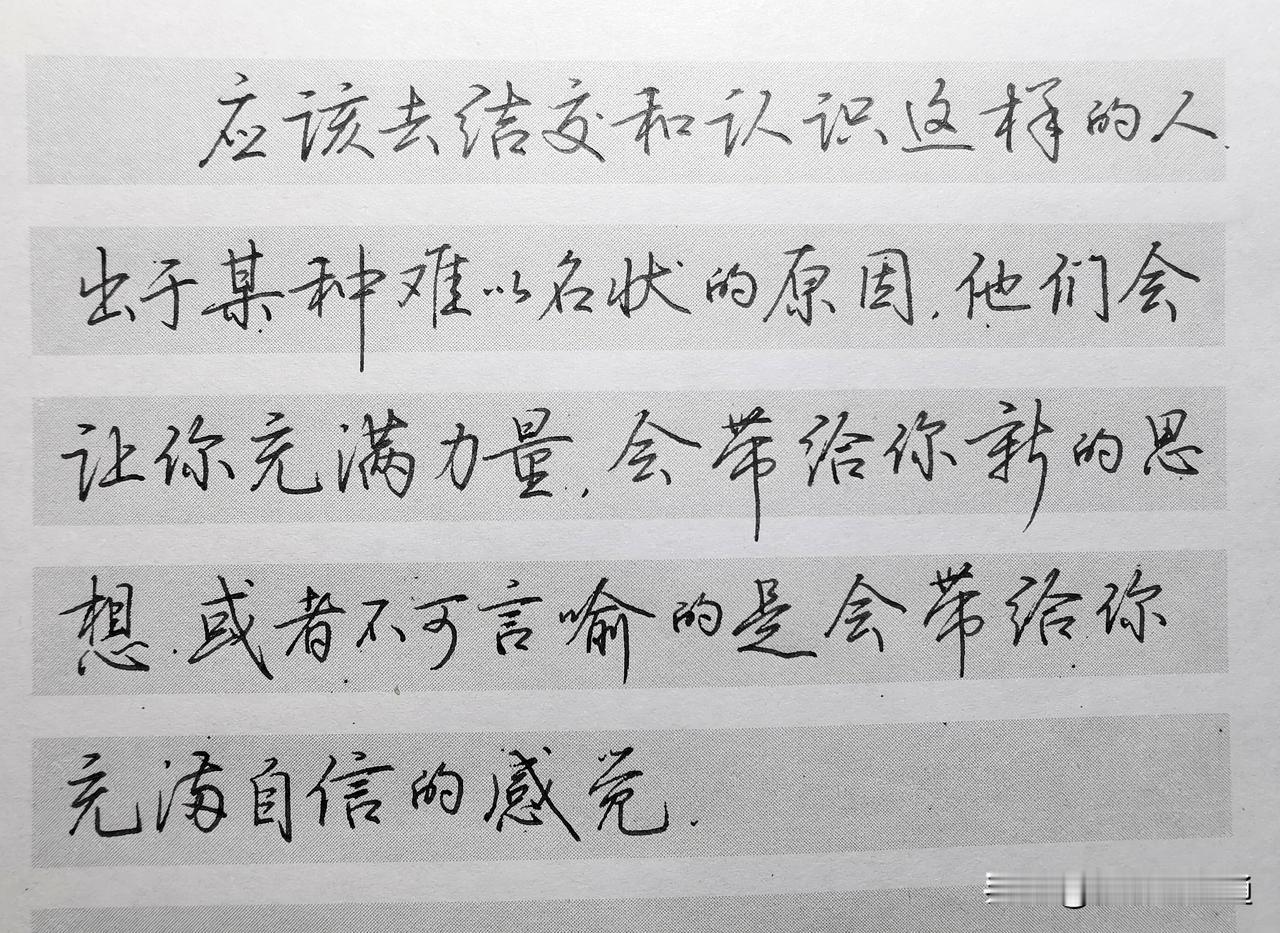 应该去结交和认识这样的人.
出于某种难以名状的原因.他们会
让你充满力量.会带给你新的思
想.或者不可言喻的是会带给你
充满自信的感觉.